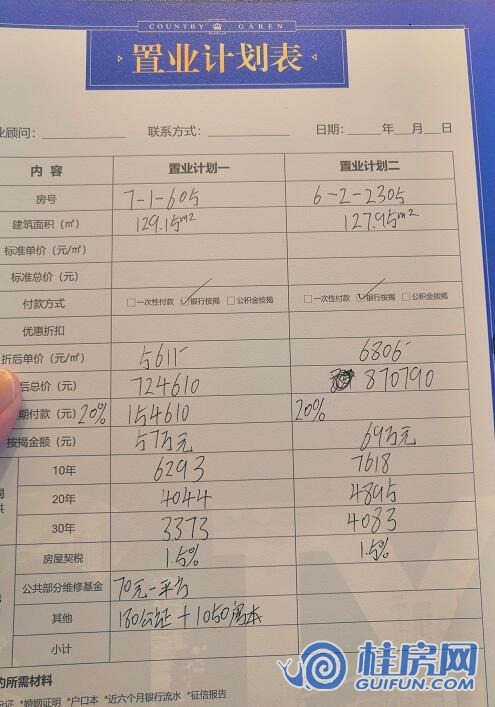 COUNTRY GAREN
置业计划表
业顾问： 联系方式： 日期： 年 月 日
内容 置业计划一 置业计划二
房号 7-1-605 6-2-2305
建筑面积（㎡） 129.15m² 127.95m²
标准单价（元/㎡）
标准总价（元）
付款方式 □一次性付款 ☑银行按揭 □公积金按揭 □一次性付款 ☑银行按揭 □公积金按揭
优惠折扣
折后单价（元/㎡） 5611- 6806-
后总价（元） 724610 870790
期付款（元）20% 154610 20%
按揭金额（元） 57万元 69万元
10年 6293 7618
20年 4044 4895
30年 3373 4083
房屋契税 1.5% 1.5%
公共部分维修基金 70元一平方
其他 180公证+1050房本
小计
的所需材料
份证 *婚姻证明 *户口本 *近六个月银行流水 *征信报告
桂房网
GUIFUN.COM